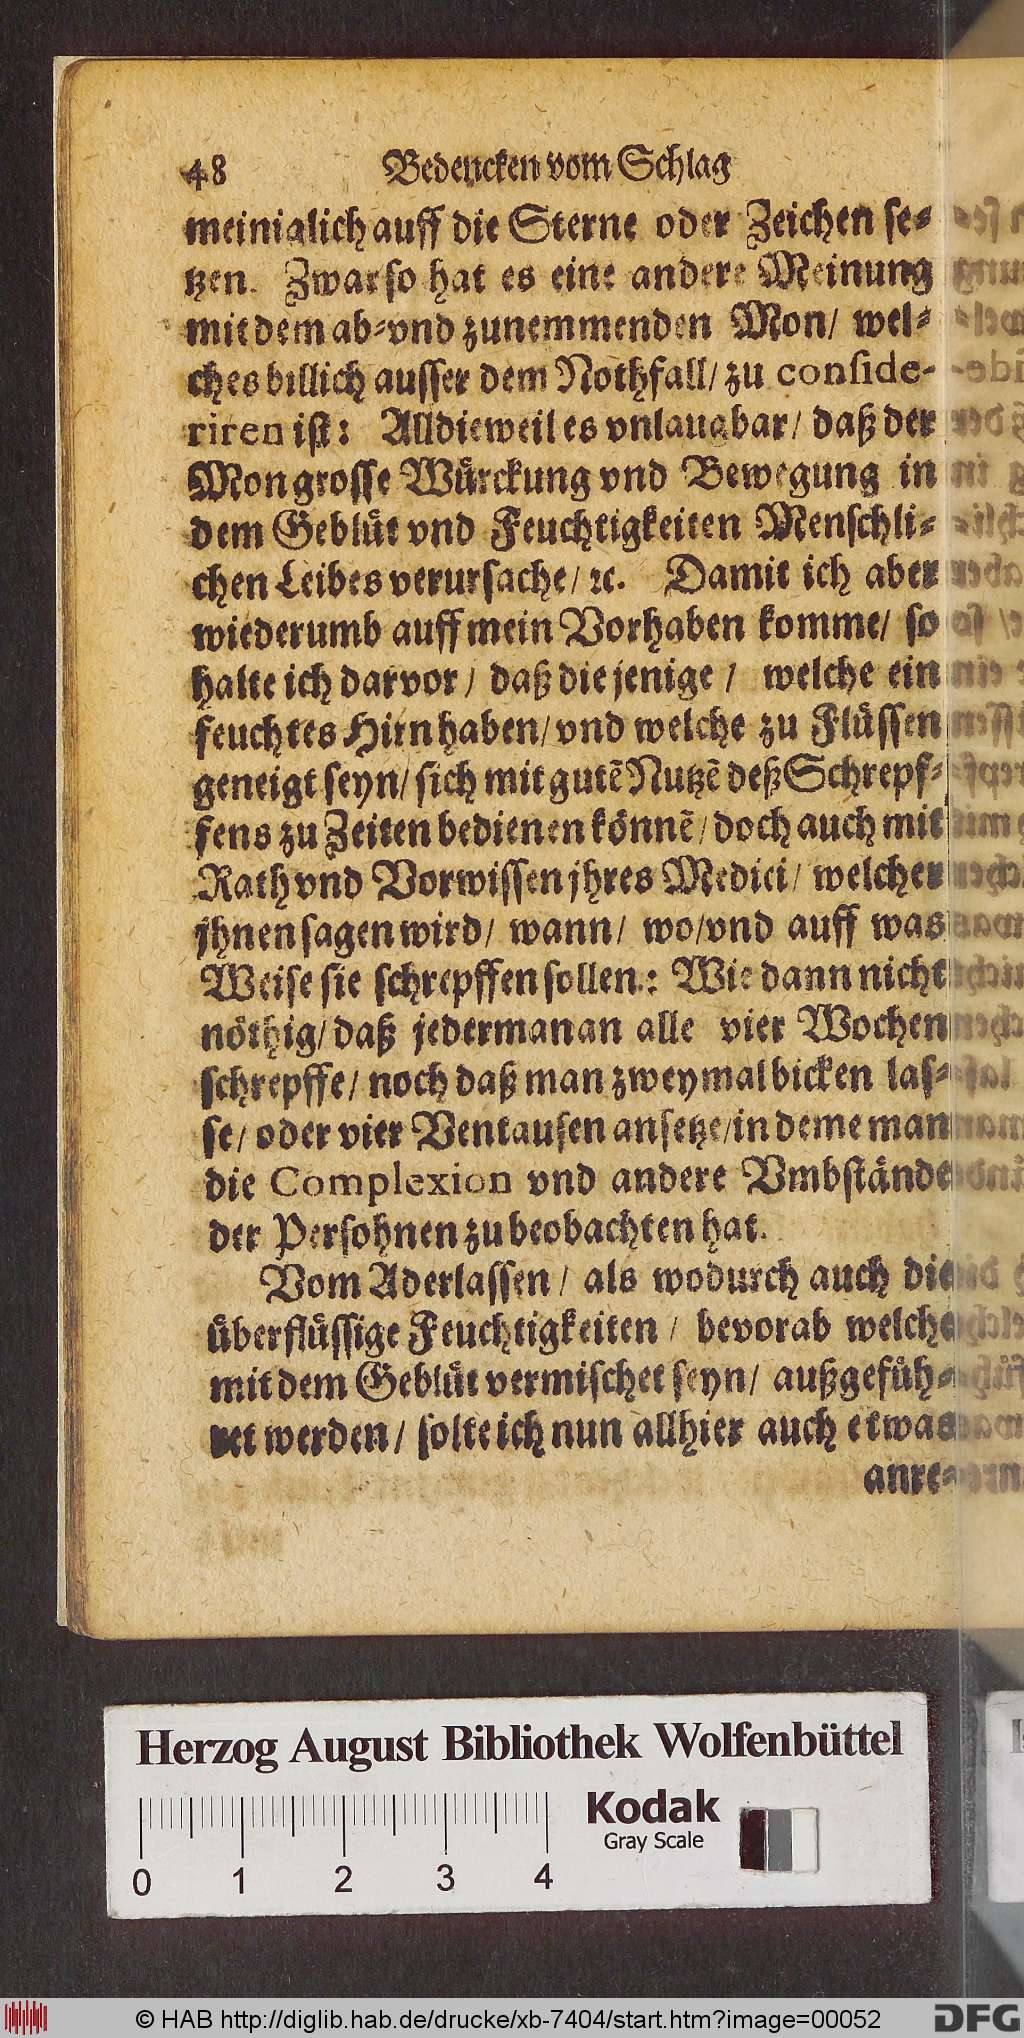 48 Bedencken vom Schlag
meiniglich auff die Sterne oder Zeichen se-
tzen. Zwar so hat es eine andere Meinung
mit dem ab-vnd zunemmenden Mon/ wel-
ches billich ausser dem Nothfall/ zu conside-
riren ist: Alldieweil es vnlaugbar/ daß der
Mon grosse Würckung vnd Bewegung in
dem Geblüt vnd Feuchtigkeiten Menschli-
chen Leibes verursache/ ꝛc. Damit ich aber
wiederumb auff mein Vorhaben komme/ so
halte ich darvor/ daß die jenige/ welche ein
feuchtes Hirn haben/ vnd welche zu Flüssen
geneigt seyn/ sich mit gutẽ Nutzẽ deß Schrepf-
fens zu Zeiten bedienen könnẽ/ doch auch mit
Rath vnd Vorwissen jhres Medici/ welcher
jhnen sagen wird/ wann/ wo/ vnd auff was
Weise sie schrepffen sollen.: Wie dann nicht
nöthig/ daß jedermanan alle vier Wochen
schrepffe/ noch daß man zweymal bicken las-
se/ oder vier Ventausen ansetze/ in deme man
die Complexion vnd andere Vmbstände
der Persohnen zu beobachten hat.
Vom Aderlassen/ als wodurch auch die
überflüssige Feuchtigkeiten/ bevorab welche
mit dem Geblüt vermischet seyn/ außgefüh-
ret werden/ solte ich nun allhier auch etwas
anre-
Herzog August Bibliothek Wolfenbüttel
Kodak
Gray Scale
0 1 2 3 4
© HAB http://diglib.hab.de/drucke/xb-7404/start.htm?image=00052
DFG